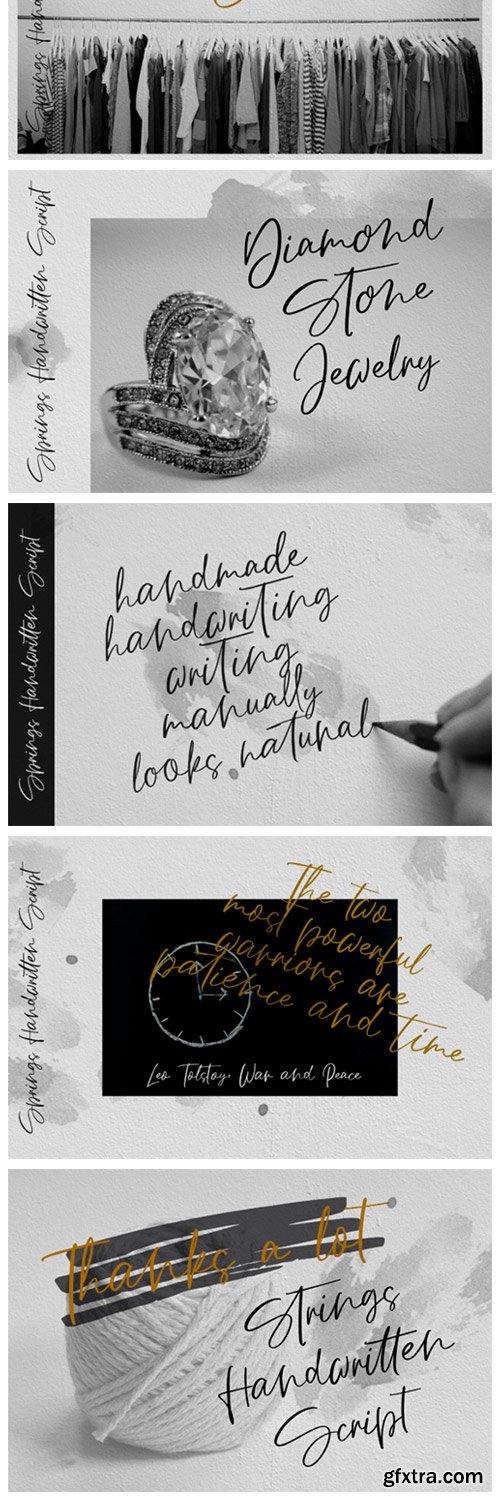 Springs Hand
Springs Handwritten Script
Diamond
Stone
Jewelry
Springs Handwritten Script
handmade
handwriting
writing
manually
looks natural
Springs Handwritten Script
The two
most powerful
warriors are
patience and time
Leo Tolstoy, War and Peace
Thanks a lot
Strings
Handwritten
Script
gfxtra.com